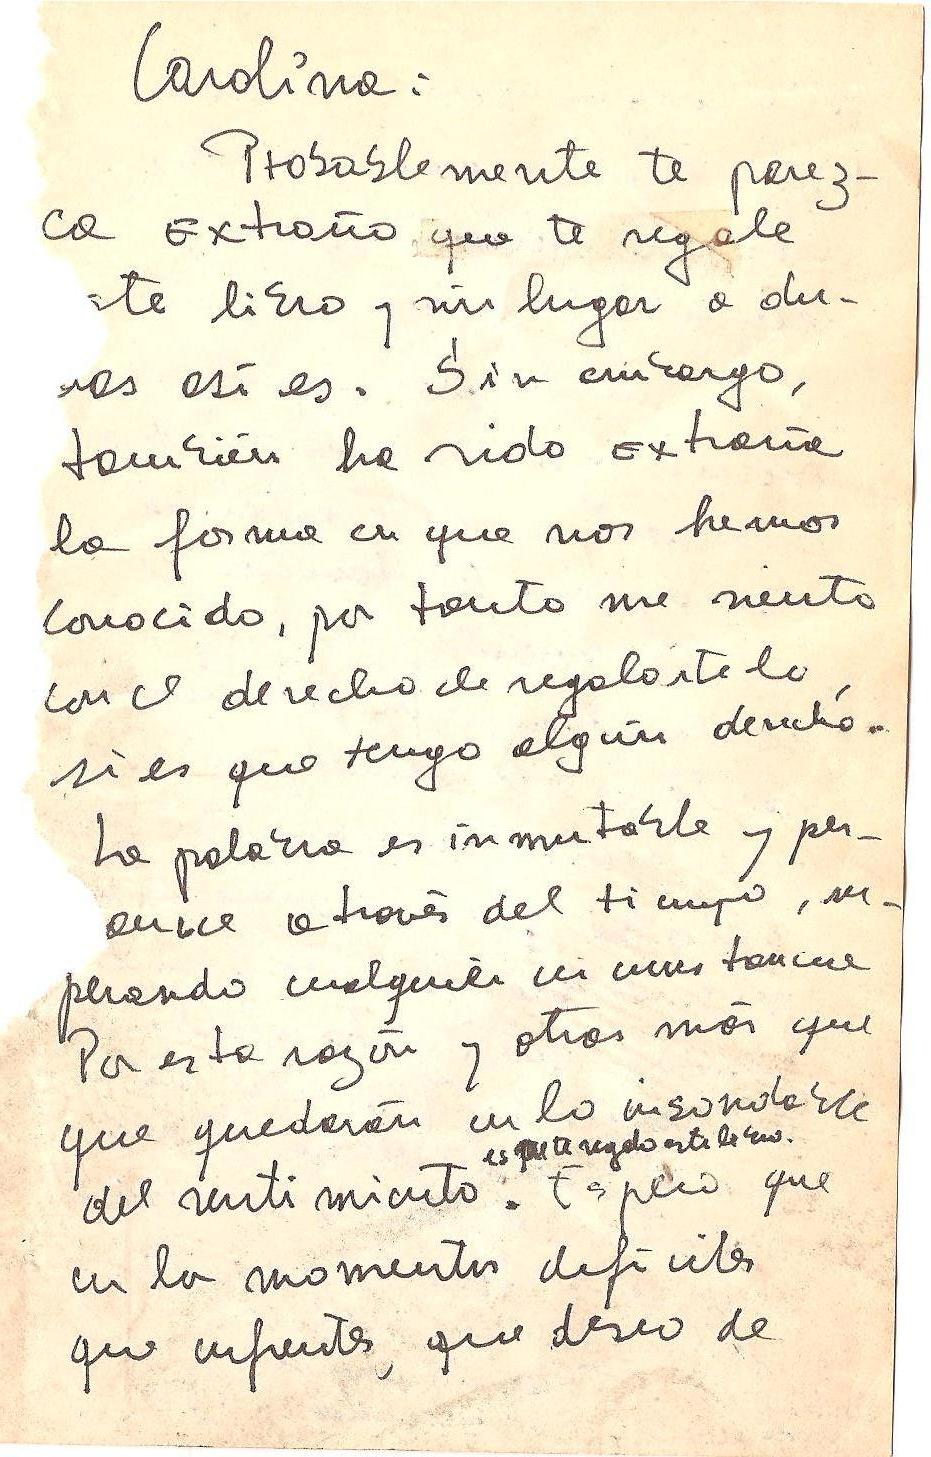 Carolina:
Probablemente te parez-
ca extraño que te regale
ste libro y sin lugar a du-
das así es. Sin embargo,
también ha sido extraña
la forma en que nos hemos
conocido, por tanto me siento
con el derecho de regalártelo,
si es que tengo algún derecho.
La palabra es inmutable y per-
anece a través del tiempo, su-
perando cualquier circunstancia
Por esta razón y otras más que
que quedarán en lo insondable
es que te regalo este libro.
del sentimiento. Espero que
en lo momentos difíciles
que enfrentes, que deseo de